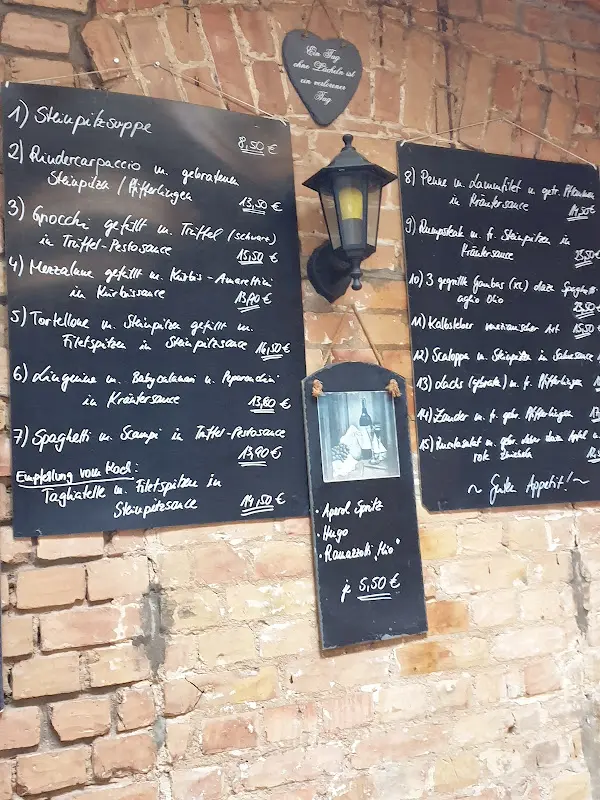 Ein Tag
ohne Lächeln ist
ein verlorener
Tag
1) Steinpilzsuppe
8,50 €
2) Rindercarpaccio m. gebratenen
Steinpilzen / Pfifferlingen
13,50 €
3) Gnocchi gefüllt m. Trüffel (schwarz)
in Trüffel-Pestosauce
15,50 €
4) Mezzalune gefüllt m. Kürbis-Amarettini
in Kürbissauce
13,90 €
5) Tortellone m. Steinpilze gefüllt m.
Filetspitzen in Steinpilzsauce
14,50 €
6) Linguine m. Babycalamari u. Peperoncini
in Kräutersauce
13,80 €
7) Spaghetti m. Scampi in Trüffel-Pestosauce
13,90 €
Empfehlung vom Koch:
Tagliatelle m. Filetspitzen in
Steinpilzsauce
14,50 €
• Aperol Spritz
• Hugo
• Ramazzotti „Mio"
je 5,50 €
8) Penne m. Lammfilet u. getr. Pflaumen
in Kräutersauce
9) Rumpsteak m. fr. Steinpilzen in
Kräutersauce
10) 3 gegrillte Gambas (XL) dazu Spaghetti
aglio olio
11) Kalbsleber venezianischer Art
15,50
12) Scaloppa m. Steinpilze in Sahnesauce
13) Lachs (gebraten) m. fr. Pfifferlingen
14) Zander m. fr. gebr. Pfifferlingen
15) m. gebr. Leber dazu Apfel u.
rote Zwiebeln
~ Guten Appetit! ~